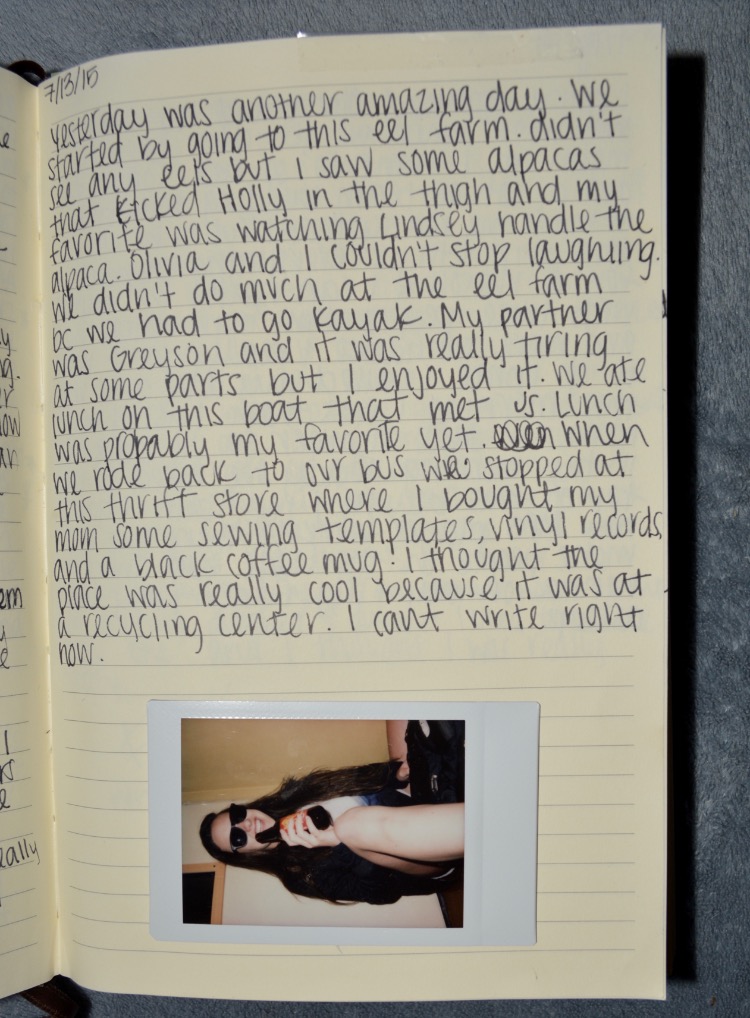 7/13/15
yesterday was another amazing day. We
started by going to this eel farm. didn't
see any eels but I saw some alpacas
that kicked Holly in the thigh and my
favorite was watching Lindsey handle the
alpaca. Olivia and I couldn't stop laughing.
we didn't do much at the eel farm
bc we had to go kayak. My partner
was Greyson and it was really tiring
at some parts but I enjoyed it. we ate
lunch on this boat that met us. Lunch
was probably my favorite yet. When
we rode back to our bus we stopped at
this thrift store where I bought my
mom some sewing templates, vinyl records,
and a black coffee mug. I thought the
place was really cool because it was at
a recycling center. I cant write right
now.